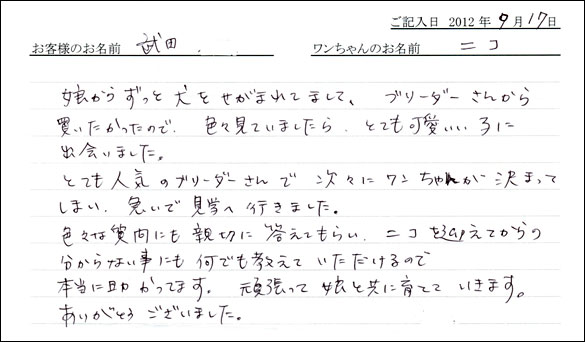 ご記入日 2012年9月17日
お客様のお名前 武田 ワンちゃんのお名前 ニコ
娘からずっと犬をせがまれてまして、ブリーダーさんから
買いたかったので、色々見ていましたら、とても可愛いい子に
出会いました。
とても人気のブリーダーさんで次々にワンちゃんが決まって
しまい、急いで見学へ行きました。
色々な質問にも親切に答えてもらい、ニコを迎えてからの
分からない事にも何でも教えていただけるので
本当に助かってます。頑張って娘と共に育てていきます。
ありがとうございました。